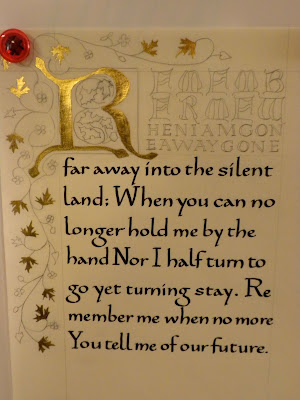 REMEMB
ERMEW
HENIAMGON
EAWAYGONE
far away into the silent
land; When you can no
longer hold me by the
hand Nor I half turn to
go yet turning stay. Re
member me when no more
You tell me of our future.